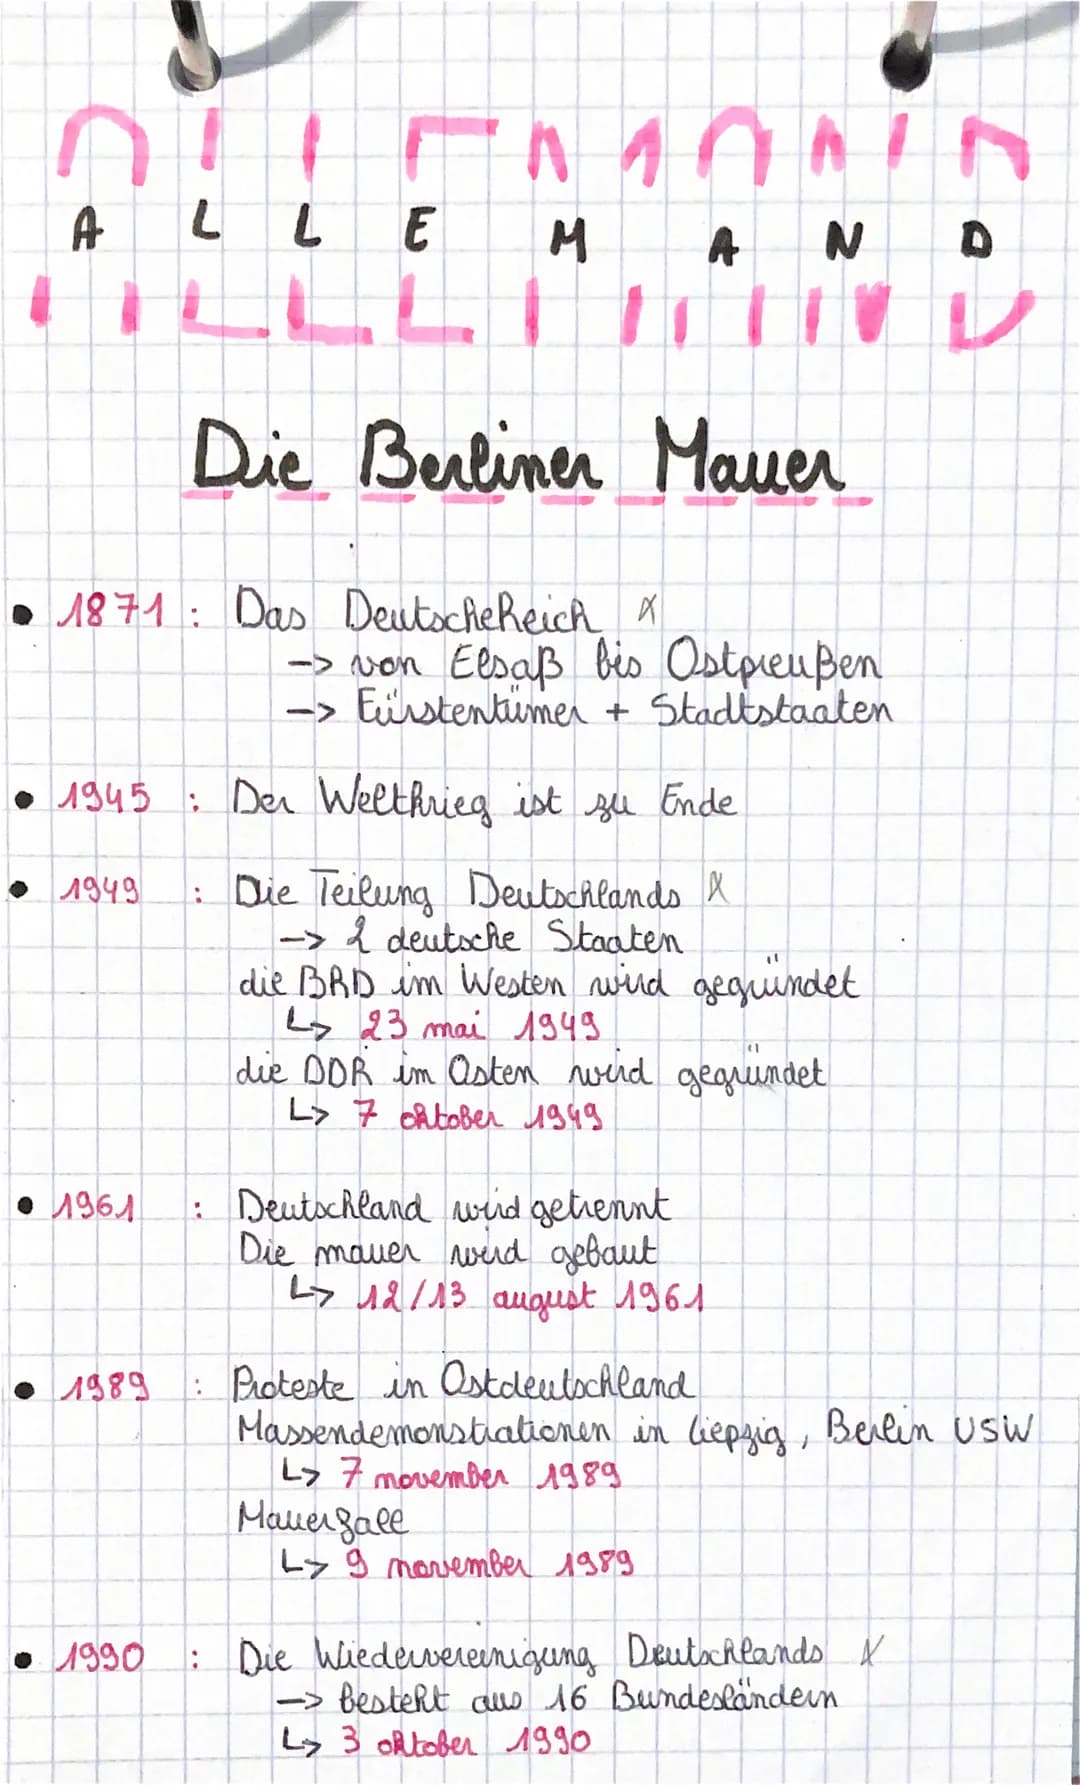 A L L E M A N D
Die Berliner Mauer
• 1871 : Das DeutscheReich
-> von Elsaß bis Ostpreußen
-> Fürstentümer + Stadtstaaten
• 1945 : Der Weltkrieg ist zu Ende
• 1949 : Die Teilung Deutschlands
-> 2 deutsche Staaten
die BRD im Westen wird gegründet
↳ 23 mai 1949
die DDR im Osten wird gegründet
↳ 7 oktober 1949
• 1961 : Deutschland wird getrennt
Die mauer wird gebaut
↳ 12/13 august 1961
• 1989 : Proteste in Ostdeutschland
Massendemonstrationen in Liepzig, Berlin USW
↳ 7 november 1989
Mauerfall
↳ 9 november 1989
• 1990 : Die Wiedervereinigung Deutschlands
-> besteht aus 16 Bundesländern
↳ 3 oktober 1990